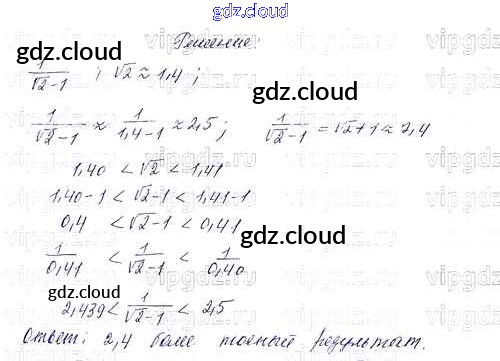 gdz.cloud
Решение
gdz.cloud gdz.cloud
1/(√2-1) ; √2 ≈ 1,4;
1/(√2-1) ≈ 1/(1,4-1) ≈ 2,5; 1/(√2-1) = √2+1 ≈ 2,4
1,40 < √2 < 1,41
1,40-1 < √2-1 < 1,41-1
0,4 < √2-1 < 0,41
gdz.cloud
1/0,41 < 1/(√2-1) < 1/0,40
gdz.cloud
2,439 < 1/(√2-1) < 2,5
Ответ: 2,4 более точный результат.